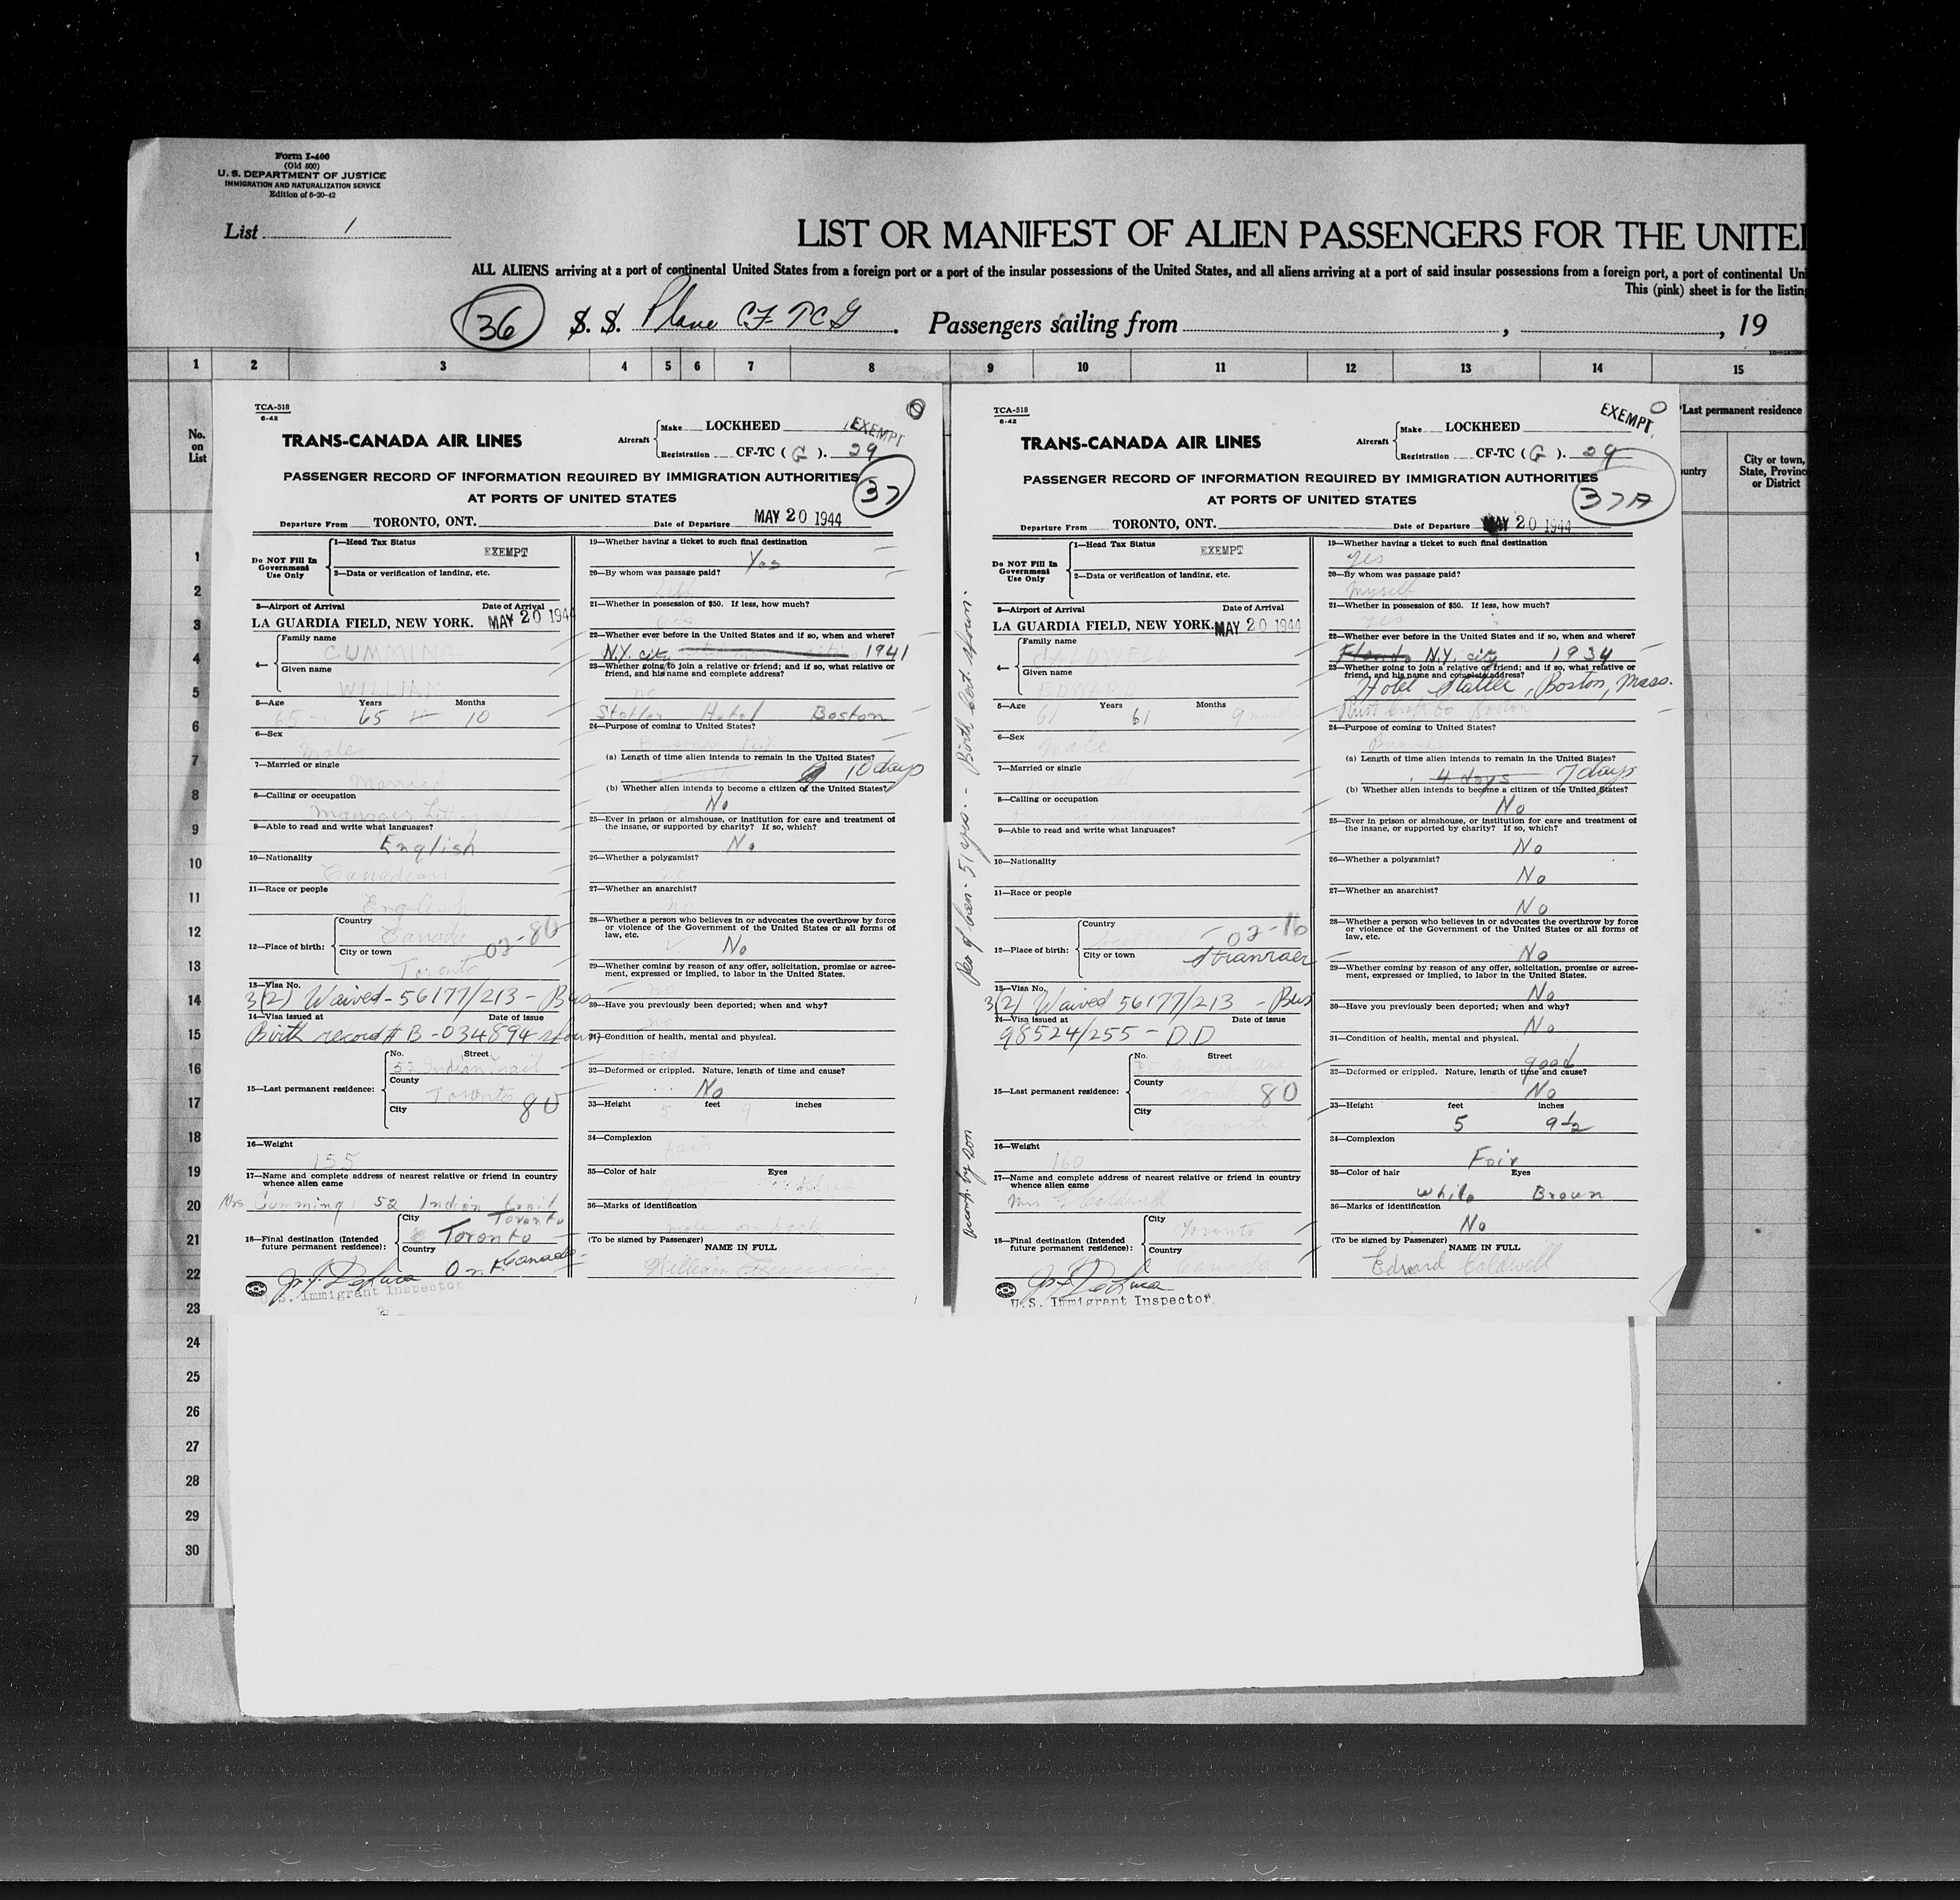 Form I-400
(Old 500)
U. S. DEPARTMENT OF JUSTICE
IMMIGRATION AND NATURALIZATION SERVICE
Edition of 6-20-42
List 1
LIST OR MANIFEST OF ALIEN PASSENGERS FOR THE UNITE
ALL ALIENS arriving at a port of continental United States from a foreign port or a port of the insular possessions of the United States, and all aliens arriving at a port of said insular possessions from a foreign port, a port of continental Uni
This (pink) sheet is for the listing
36 S. S. Plane CF TCG . Passengers sailing from , , 19
1 2 3 4 5 6 7 8 9 10 11 12 13 14 15
No. on List
Last permanent residence
ountry
City or town, State, Province or District
1
2
3
4
5
6
7
8
9
10
11
12
13
14
15
16
17
18
19
20
21
22
23
24
25
26
27
28
29
30
TCA-518
6-42
TRANS-CANADA AIR LINES
Aircraft
Make LOCKHEED
EXEMPT
Registration CF-TC ( G ). 29
PASSENGER RECORD OF INFORMATION REQUIRED BY IMMIGRATION AUTHORITIES
37
AT PORTS OF UNITED STATES
Departure From TORONTO, ONT. Date of Departure MAY 20 1944
Do NOT Fill In Government Use Only
1—Head Tax Status EXEMPT
2—Data or verification of landing, etc.
3—Airport of Arrival Date of Arrival
LA GUARDIA FIELD, NEW YORK. MAY 20 1944
4— Family name
CUMMING
Given name
WILLIAM
5—Age Years Months
65 65 10
6—Sex
Male
7—Married or single
Married
8—Calling or occupation
Manager
9—Able to read and write what languages?
English
10—Nationality
Canadian
11—Race or people
English
12—Place of birth:
Country
Canada
02-80
City or town
Toronto
13—Visa No.
3(2) Waived - 56177/213 - Bus
14—Visa issued at Date of issue
Birth record # B-034894 shown
15—Last permanent residence:
No. Street
52 Indian Trail
County
Toronto 80
City
16—Weight
155
17—Name and complete address of nearest relative or friend in country whence alien came
Mrs Cumming 52 Indian Trail
Toronto
18—Final destination (Intended future permanent residence):
City
Toronto
Country
Ont Canada
U.S. Immigrant Inspector
19—Whether having a ticket to such final destination
Yes
20—By whom was passage paid?
21—Whether in possession of $50. If less, how much?
yes
22—Whether ever before in the United States and if so, when and where?
N.Y. city 1941
23—Whether going to join a relative or friend; and if so, what relative or friend, and his name and complete address?
no
Statler Hotel Boston
24—Purpose of coming to United States?
(a) Length of time alien intends to remain in the United States?
10 days
(b) Whether alien intends to become a citizen of the United States?
No
25—Ever in prison or almshouse, or institution for care and treatment of the insane, or supported by charity? If so, which?
No
26—Whether a polygamist?
no
27—Whether an anarchist?
no
28—Whether a person who believes in or advocates the overthrow by force or violence of the Government of the United States or all forms of law, etc.
No
29—Whether coming by reason of any offer, solicitation, promise or agreement, expressed or implied, to labor in the United States.
no
30—Have you previously been deported; when and why?
no
31—Condition of health, mental and physical.
good
32—Deformed or crippled. Nature, length of time and cause?
No
33—Height feet inches
5 9
34—Complexion
fair
35—Color of hair Eyes
36—Marks of identification
mole on back
(To be signed by Passenger) NAME IN FULL
William Cumming
TCA-518
6-42
TRANS-CANADA AIR LINES
Aircraft
Make LOCKHEED
EXEMPT
Registration CF-TC ( G ). 29
PASSENGER RECORD OF INFORMATION REQUIRED BY IMMIGRATION AUTHORITIES
37A
AT PORTS OF UNITED STATES
Departure From TORONTO, ONT. Date of Departure MAY 20 1944
Do NOT Fill In Government Use Only
1—Head Tax Status EXEMPT
2—Data or verification of landing, etc.
3—Airport of Arrival Date of Arrival
LA GUARDIA FIELD, NEW YORK. MAY 20 1944
4— Family name
CALDWELL
Given name
EDWARD
5—Age Years Months
61 61 9
6—Sex
Male
7—Married or single
8—Calling or occupation
9—Able to read and write what languages?
10—Nationality
11—Race or people
12—Place of birth:
Country
02-16
City or town
Stranraer
13—Visa No.
3(2) Waived 56177/213 - Bus
14—Visa issued at Date of issue
98524/255 - DD
15—Last permanent residence:
No. Street
County
York 80
City
Toronto
16—Weight
160
17—Name and complete address of nearest relative or friend in country whence alien came
Mrs Caldwell
18—Final destination (Intended future permanent residence):
City
Toronto
Country
Canada
U.S. Immigrant Inspector
19—Whether having a ticket to such final destination
yes
20—By whom was passage paid?
myself
21—Whether in possession of $50. If less, how much?
yes
22—Whether ever before in the United States and if so, when and where?
Florida N.Y. city 1934
23—Whether going to join a relative or friend; and if so, what relative or friend, and his name and complete address?
Hotel Statler, Boston, Mass.
Rust Craft Co Boston
24—Purpose of coming to United States?
Business
(a) Length of time alien intends to remain in the United States?
4 days 7 days
(b) Whether alien intends to become a citizen of the United States?
No
25—Ever in prison or almshouse, or institution for care and treatment of the insane, or supported by charity? If so, which?
No
26—Whether a polygamist?
No
27—Whether an anarchist?
No
28—Whether a person who believes in or advocates the overthrow by force or violence of the Government of the United States or all forms of law, etc.
No
29—Whether coming by reason of any offer, solicitation, promise or agreement, expressed or implied, to labor in the United States.
No
30—Have you previously been deported; when and why?
No
31—Condition of health, mental and physical.
good
32—Deformed or crippled. Nature, length of time and cause?
No
33—Height feet inches
5 9½
34—Complexion
Fair
35—Color of hair Eyes
white Brown
36—Marks of identification
No
(To be signed by Passenger) NAME IN FULL
Edward Caldwell
Res of Can. 51 yrs. - Birth cert. shown.
accomp. by son